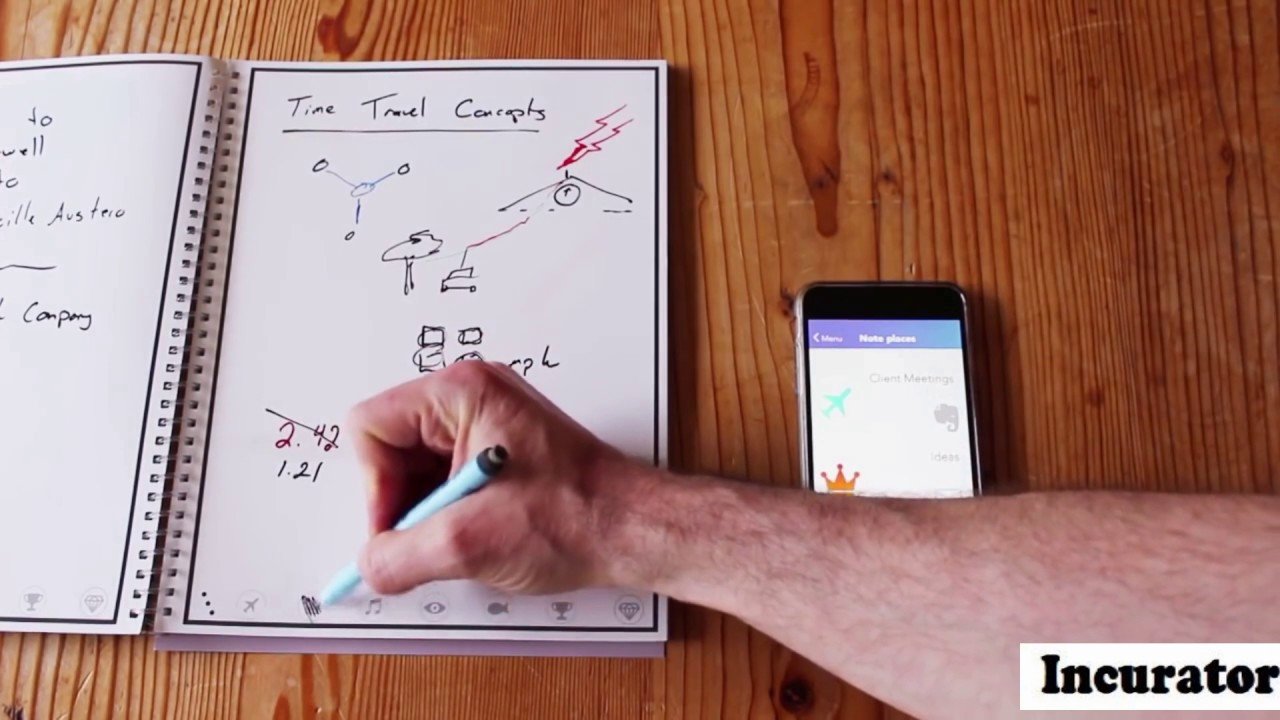 to
well
to
ille Austero
Company
Time Travel Concepts
0
0
0
mph
2.42
1.21
Menu
Note places
Client Meetings
Ideas
Incurator